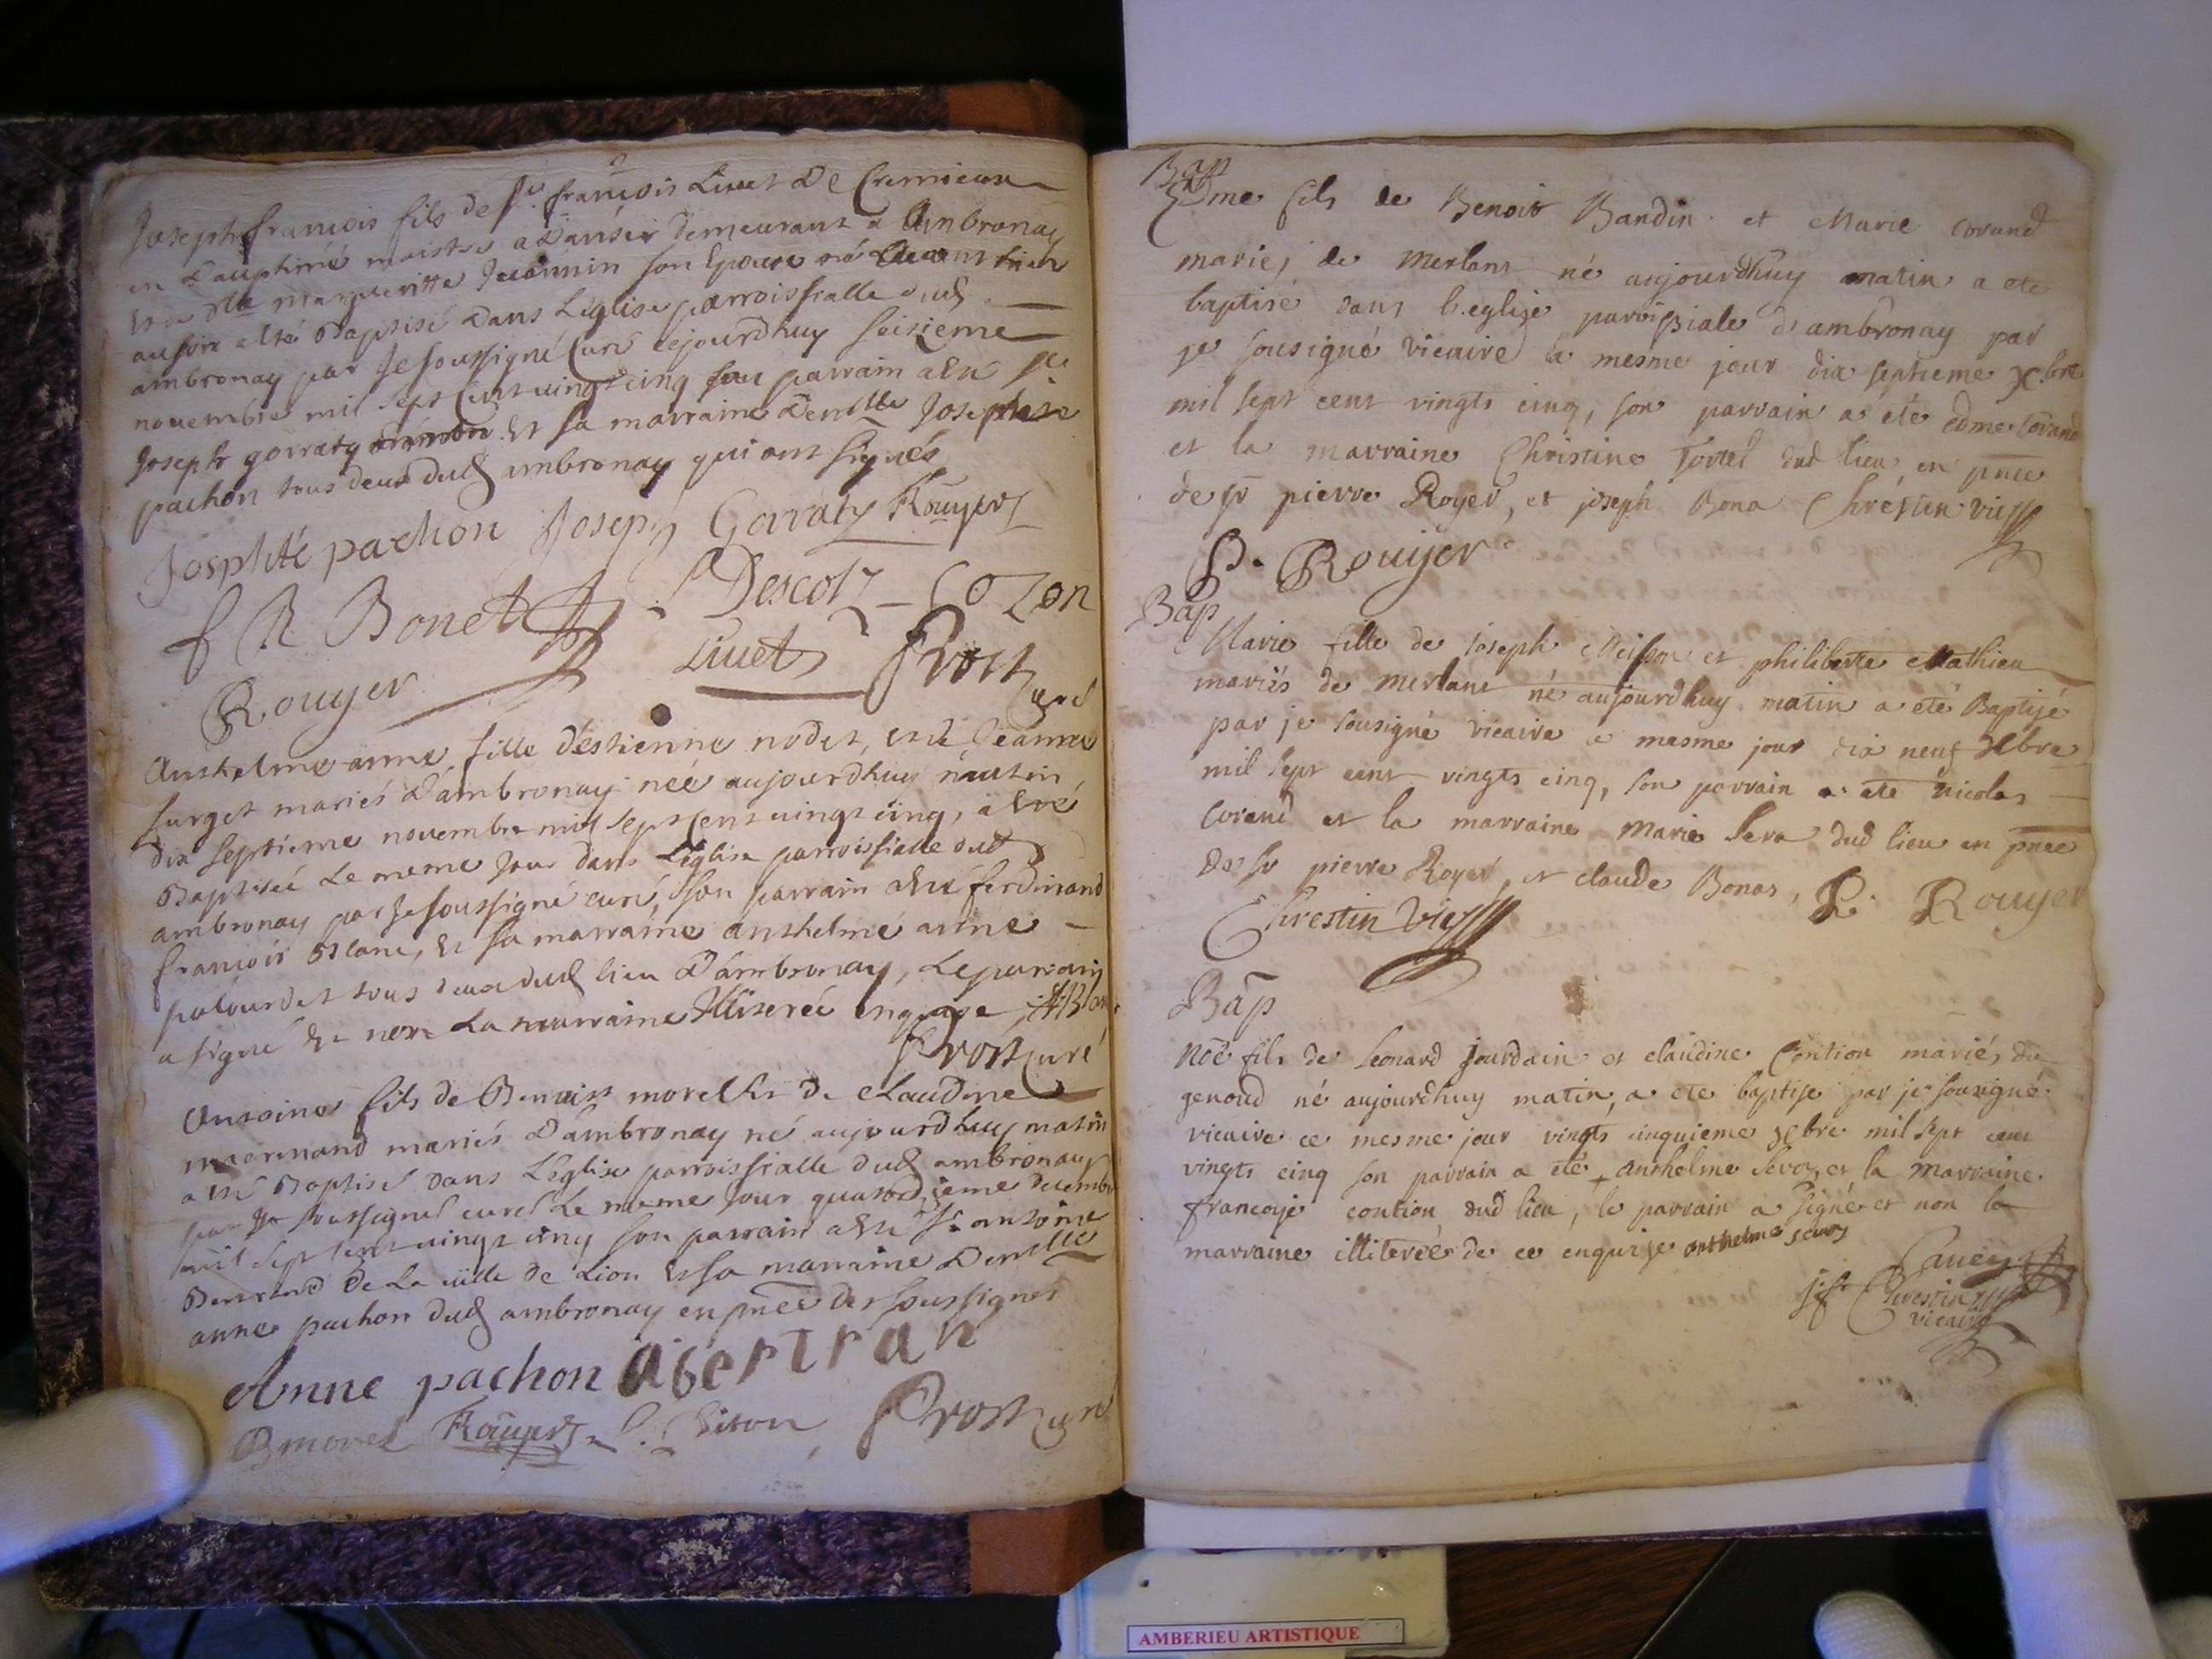 Joseph francois fils de Sr. francois Livet De Cremieux
en Dauphiné maistre a Danser demeurant a Ambronay
et de Dlle margueritte Jeannin son Epouse né avant hier
au soir a esté Baptisé Dans L'eglise parroissialle dud
ambronay par Je soussigné Curé cejourdhuy seizieme
novembre mil sept Cent vingt cinq son parrain a esté Sr
Joseph gorraty et sa marraine Demlle Josephte
pachon tous deux dud ambronay qui ont signés
Josphté pachon Joseph Gorraty Rouyer
f R Bonet Descots Cozon
Rouyer Livet Prost Curé
Anthelme anne fille d'estienne nodet, et de Jeanne
surget mariés D'ambronay née aujourdhuy matin
dix septieme novembre mil sept Cent vingt cinq, a esté
Baptisée Le meme Jour dans L'eglise parroissialle dud
ambronay par Je soussigné curé, son parrain a esté ferdinand
francois Blanc, et sa marraine anthelme anne
palourdet tous deux dud lieu D'ambronay, Le parrain
a signé et non La marraine Illiterée enquise, f Blanc
Prost curé
Antoine fils de Benoist morel et de Claudine
mariés D'ambronay né aujourdhuy matin
a esté Baptisé Dans L'eglise parroissialle dud ambronay
par Je soussigné curé Le meme Jour quatorzieme decembre
mil sept Cent vingt cinq son parrain a esté Sr. antoine
Bertrand De La ville de Lion et sa marraine Demlle
anne pachon dud ambronay en pnce des soussignes
Anne pachon abertran
B morel Rouyer Prost Curé
Bap
Edme fils de Benoit Bandin et Marie Corand
mariés de Merlans né aujourdhuy matin a ete
baptisé dans l.eglise paroissiale d'ambronay par
je sousigné vicaire le mesme jour dix septieme Xbre
mil sept cent vingts cinq, son parrain a été Edme Corand
et la marraine Christine Tortel dud lieu en pnce
de sr pierre Royer, et joseph Bona Chrestin vic
P. Rouyer
Bap
Marie fille de joseph Meisson et philiberte Mathieu
mariés de Merlans né aujourdhuy matin a eté Baptisé
par je sousigné vicaire ce mesme jour dix neuf Xbre
mil sept cent vingts cinq, son parrain a eté nicolas
Corand et la marraine Marie Seva dud lieu en pnce
De sr pierre Royer, et claude Bonas, P. Rouyer
Chrestin Vic
Bap
Noé fils de Leonard Jourdain et claudine Contion mariés du
genoud né aujourdhuy matin, a ete baptise par je sousigné
vicaire ce mesme jour vingts cinquieme Xbre mil sept cent
vingts cinq son parrain a eté + Anthelme Seva, et la marraine
francoise contion dud lieu, le parrain a signé et non la
marraine illiterée de ce enquise anthelme
Chrestin
vicaire
AMBERIEU ARTISTIQUE